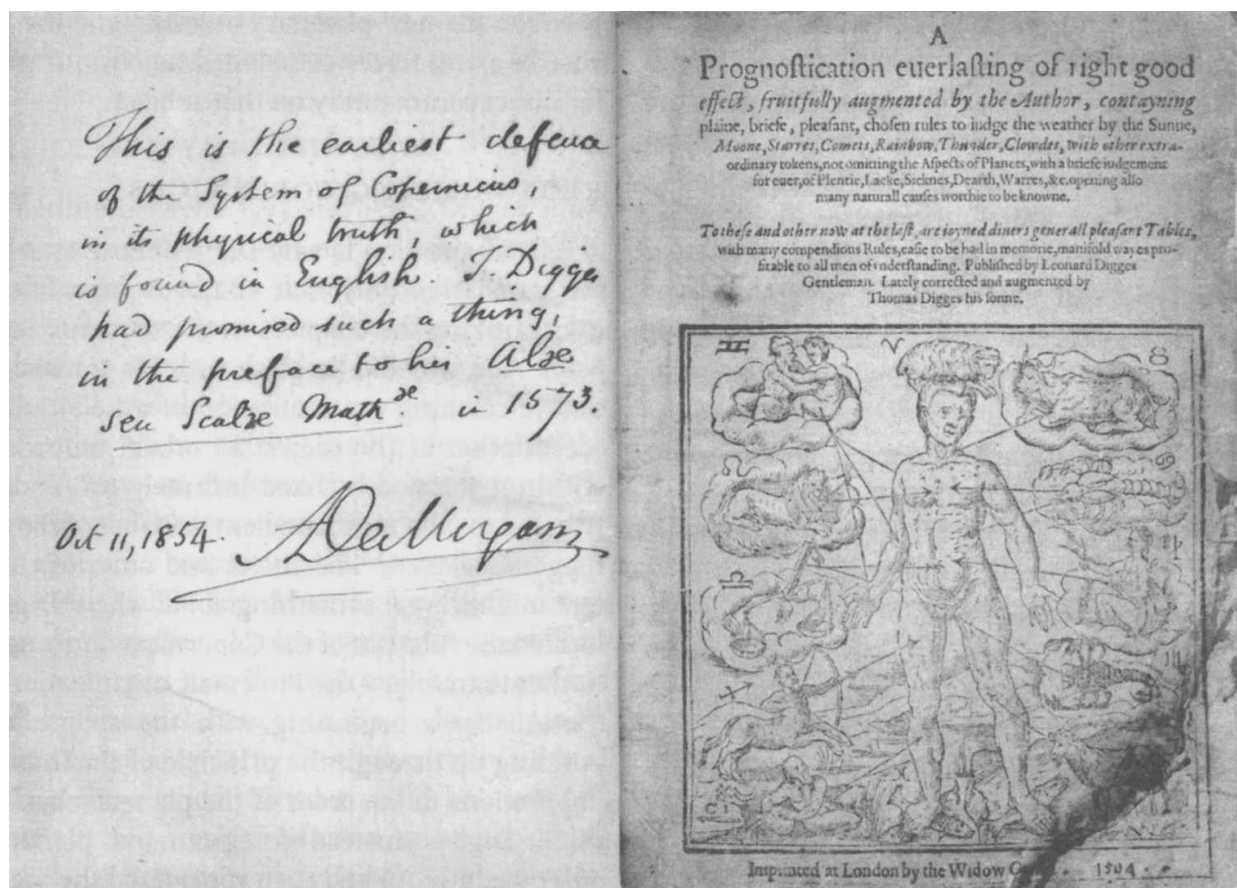 This is the earliest defence
of the System of Copernicus
in its physical truth, which
is found in English. T. Digges
had promised such a thing,
in the preface to his Alæ
seu Scalæ Mathæ in 1573.
Oct 11, 1854. ADeMorgan
A
Prognoſtication euerlaſting of right good
effect, fruitfully augmented by the Author, contayning
plaine, briefe, pleaſant, choſen rules to iudge the weather by the Sunne,
Moone, Starres, Comets, Rainbow, Thunder, Clowdes, with other extra-
ordinary tokens, not omitting the Aſpects of Planets, with a briefe iudgement
for euer, of Plentie, Lacke, Sicknes, Dearth, Warres, &c. opening alſo
many naturall cauſes worthie to be knowne.
To theſe and other now at the laſt, are ioyned diuers generall pleaſant Tables,
with many compendious Rules, eaſie to be had in memorie, manifold wayes pro-
fitable to all men of vnderſtanding. Publiſhed by Leonard Digges
Gentleman. Lately corrected and augmented by
Thomas Digges his ſonne.
Imprinted at London by the Widow